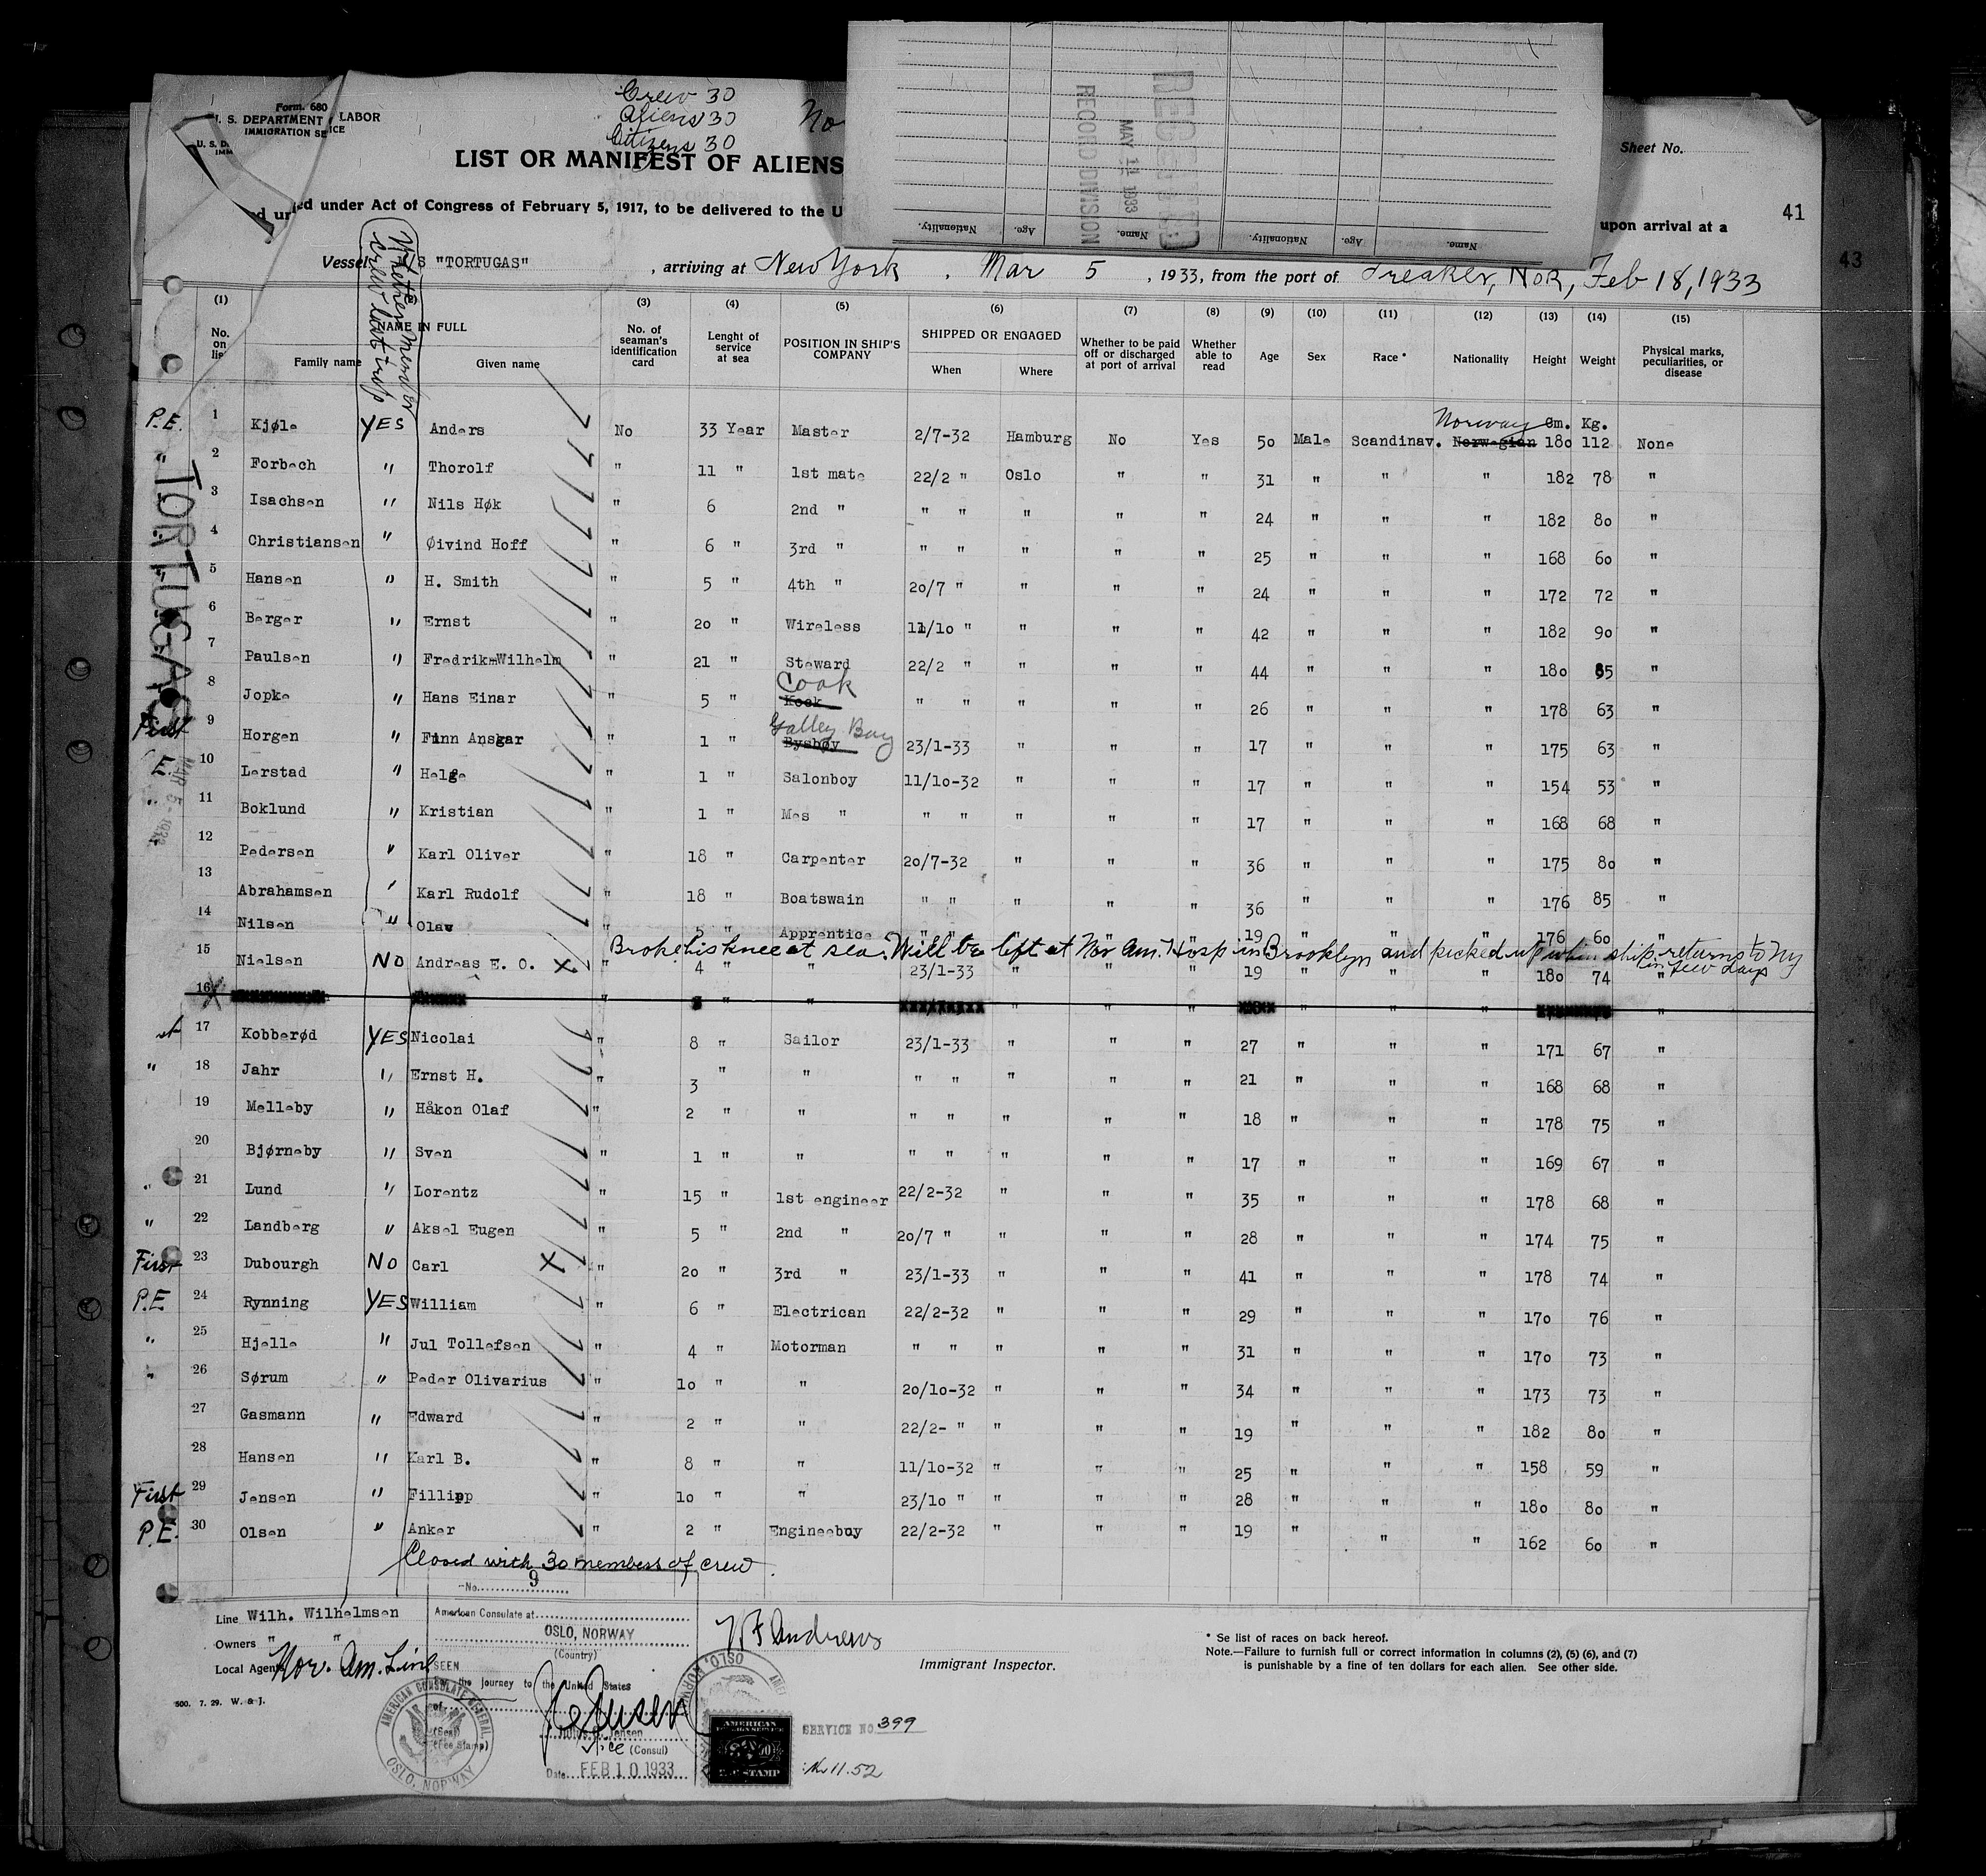 Form. 680
U. S. DEPARTMENT LABOR
IMMIGRATION SE ICE
Crew 30
Aliens 30
Citizens 30
No
LIST OR MANIFEST OF ALIENS
Sheet No.
RECORD DIVISION
MAY 11 1933
Name. Age. Nationality. Name. Age. Nationality.
under Act of Congress of February 5, 1917, to be delivered to the U
upon arrival at a
41
43
Vessel S "TORTUGAS" , arriving at New York , Mar 5 , 1933, from the port of Treaker, NOR, Feb 18, 1933
Whether member crew last trip
(1) (3) (4) (5) (6) (7) (8) (9) (10) (11) (12) (13) (14) (15)
No. on list NAME IN FULL Family name Given name No. of seaman's identification card Lenght of service at sea POSITION IN SHIP'S COMPANY SHIPPED OR ENGAGED When Where Whether to be paid off or discharged at port of arrival Whether able to read Age Sex Race * Nationality Height Weight Physical marks, peculiarities, or disease
Norway Cm. Kg.
P.E. 1 Kjøle YES Anders No 33 Year Master 2/7-32 Hamburg No Yes 50 Male Scandinav. Norwegian 180 112 None
" 2 Forbech " Thorolf " 11 " 1st mate 22/2 " Oslo " " 31 " " " 182 78 "
TORTUGAS
3 Isachsen " Nils Høk " 6 2nd " " " " " " 24 " " " 182 80 "
4 Christiansen " Øivind Hoff " 6 " 3rd " " " " " " 25 " " " 168 60 "
5 Hansen " H. Smith " 5 " 4th " 20/7 " " " " 24 " " " 172 72 "
6 Berger " Ernst " 20 " Wireless 11/10 " " " " 42 " " " 182 90 "
7 Paulsen " Fredrik Wilhelm " 21 " Steward 22/2 " " " " 44 " " " 180 85 "
Cook
8 Jopke " Hans Einar " 5 " Kock " " " " " 26 " " " 178 63 "
Galley Boy
First 9 Horgen " Finn Ansgar " 1 " Bysbøy 23/1-33 " " " 17 " " " 175 63 "
E. 10 Lerstad " Helge " 1 " Salonboy 11/10-32 " " " 17 " " " 154 53 "
MAR 5 - 1933
" 11 Boklund " Kristian " 1 " Mes " " " " " " 17 " " " 168 68 "
12 Pedersen " Karl Oliver " 18 " Carpenter 20/7-32 " " " 36 " " " 175 80 "
13 Abrahamsen " Karl Rudolf " 18 " Boatswain " " " " " 36 " " " 176 85 "
14 Nilsen " Olav " 5 " Apprentice " " " " " 19 " " " 176 60 "
Broke his knee at sea. Will be left at Nor Am. Hosp in Brooklyn and picked up when ship returns to NY in few days
15 Nielsen NO Andreas E. O. X " 4 " " 23/1-33 " " " 19 " " " 180 74 "
16 X " " " " " " " " " "
17 Kobberød YES Nicolai " 8 " Sailor 23/1-33 " " " 27 " " " 171 67 "
" 18 Jahr " Ernst H. " 3 " " " " " " " 21 " " " 168 68 "
19 Melleby " Håkon Olaf " 2 " " " " " " " 18 " " " 178 75 "
20 Bjørneby " Sven " 1 " " " " " " " 17 " " " 169 67 "
" 21 Lund " Lorentz " 15 " 1st engineer 22/2-32 " " " 35 " " " 178 68 "
" 22 Landberg " Aksel Eugen " 5 " 2nd " 20/7 " " " " 28 " " " 174 75 "
First 23 Dubourgh NO Carl X " 20 " 3rd " 23/1-33 " " " 41 " " " 178 74 "
P.E 24 Rynning YES William " 6 " Electrican 22/2-32 " " " 29 " " " 170 76 "
" 25 Hjelle " Jul Tollefsen " 4 " Motorman " " " " " 31 " " " 170 73 "
" 26 Sørum " Peder Olivarius " 10 " " 20/10-32 " " " 34 " " " 173 73 "
27 Gasmann " Edward " 2 " " 22/2- " " " " 19 " " " 182 80 "
28 Hansen " Karl B. " 8 " " 11/10-32 " " " 25 " " " 158 59 "
First 29 Jensen " Fillipp " 10 " " 23/10 " " " " 28 " " " 180 80 "
P.E. 30 Olsen " Anker " 2 " Engineboy 22/2-32 " " " 19 " " " 162 60 "
Closed with 30 members of crew.
No. 9
Line Wilh. Wilhelmsen
Owners " "
Local Agents Nor. Am. Line
500. 7. 29. W. & J.
American Consulate at
OSLO, NORWAY
(Country)
SEEN
For the journey to the United States
of
(Seal)
(Fee Stamp)
Jensen
Vice (Consul)
Date FEB 10 1933
AMERICAN CONSULATE GENERAL
OSLO, NORWAY
Andrews
Immigrant Inspector.
OSLO, NORWAY
AMERICAN
FOREIGN SERVICE
FEE STAMP
SERVICE NO 399
11.52
* Se list of races on back hereof.
Note.—Failure to furnish full or correct information in columns (2), (5) (6), and (7)
is punishable by a fine of ten dollars for each alien. See other side.